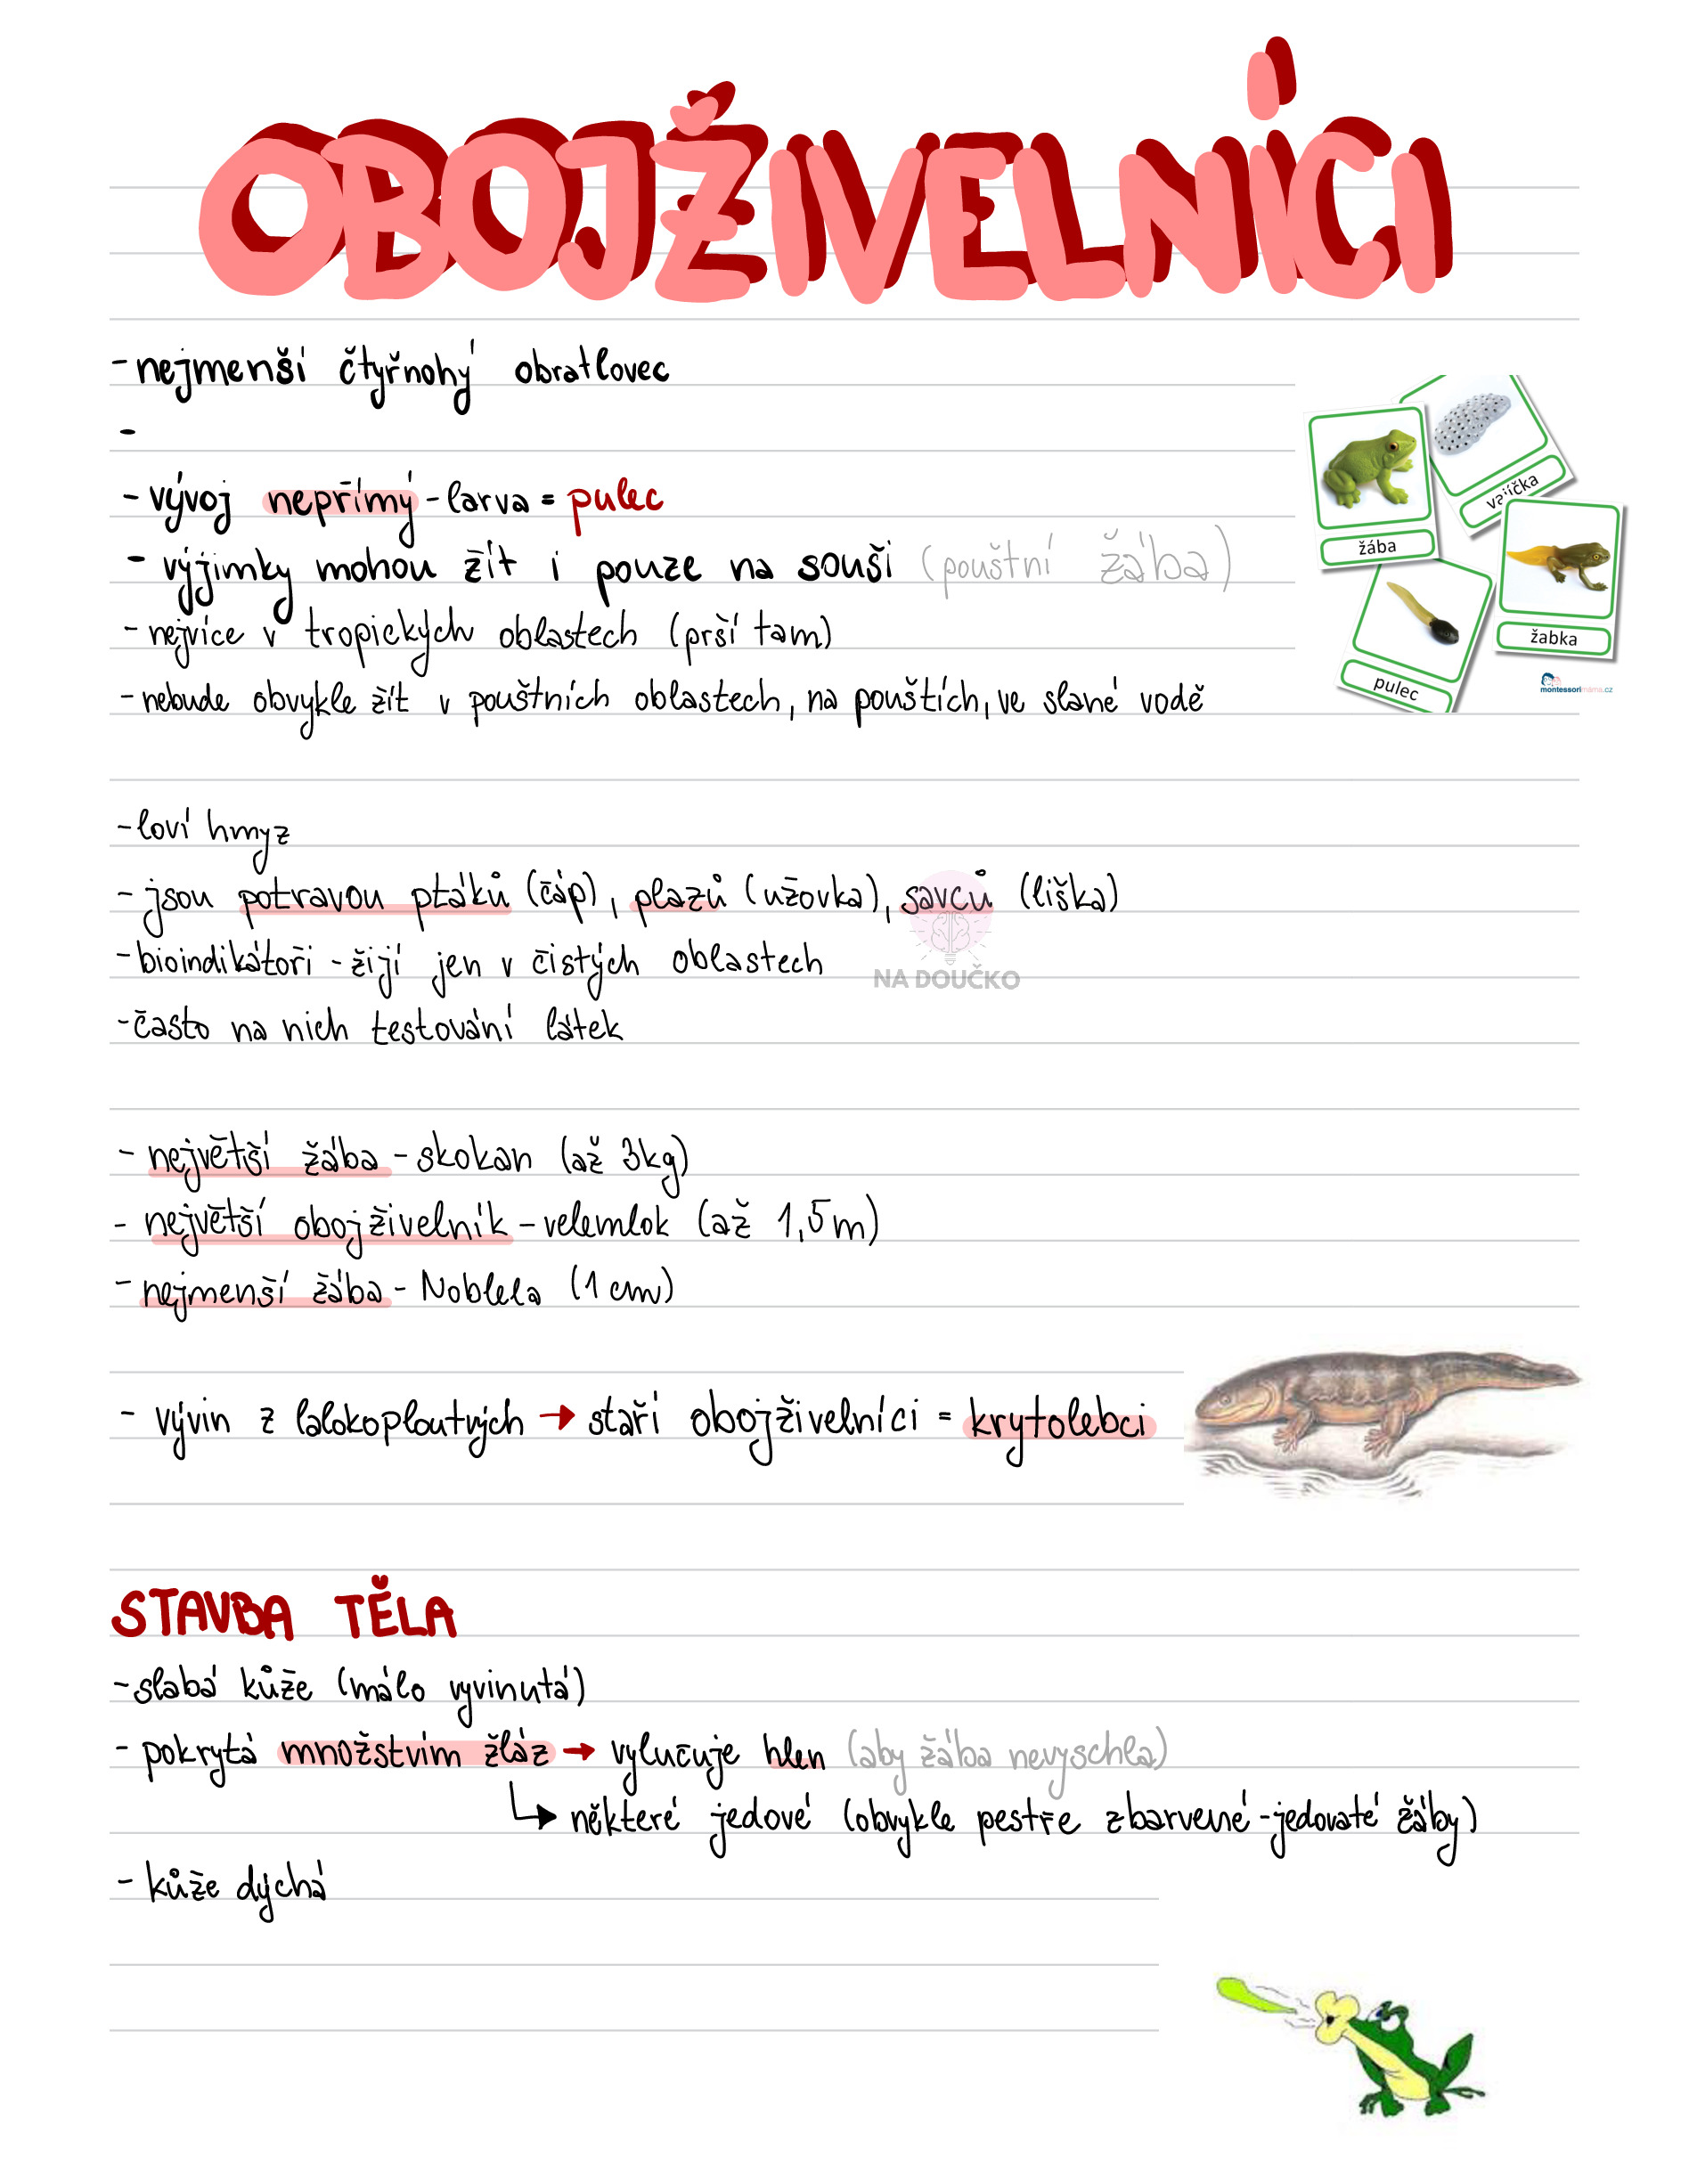 OBOJŽIVELNÍCI
- nejmenší čtyřnohý obratlovec
-
- vývoj nepřímý - larva = pulec
- výjimky mohou žít i pouze na souši (pouštní žába)
- nejvíce v tropických oblastech (prší tam)
- nebude obvykle žít v pouštních oblastech, na pouštích, ve slané vodě
vajíčka
žába
žabka
pulec
montessorimáma.cz
- loví hmyz
- jsou potravou ptáků (čáp), plazů (užovka), savců (liška)
- bioindikátoři - žijí jen v čistých oblastech
NA DOUČKO
- často na nich testování látek
- největší žába - skokan (až 3kg)
- největší obojživelník - velemlok (až 1,5m)
- nejmenší žába - Noblela (1 cm)
- vývin z lalokoploutvých → staří obojživelníci = krytolebci
STAVBA TĚLA
- slabá kůže (málo vyvinutá)
- pokrytá množstvím žláz → vylučuje hlen (aby žába nevyschla)
↳ některé jedové (obvykle pestře zbarvené - jedovaté žáby)
- kůže dýchá